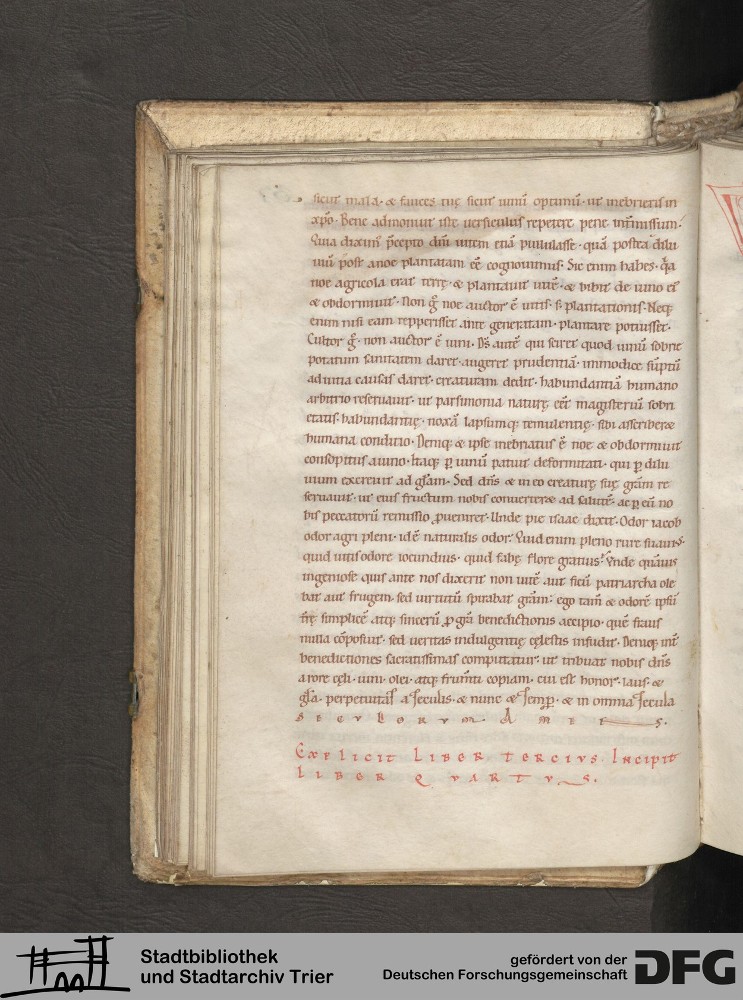 sicut mala · & fauces tuę sicut uinū optimū · ut inebrieris in
xp̄o · Bene admonuit iste uersiculus repetere pene intermissum ·
Quia diximꝰ p̄cepto dn̄i uitem etiā pullulasse · quā postea dilu
uiū post a noe plantatam eē cognouimus · Sic enim habes · q̄a
noe agricola erat terrę · & plantauit uitē · & bibit de uino ei᷒
& obdormiuit · Non g̊ noe auctor ē uitis · s; plantationis · Neq;
enim nisi eam repperisset ante generatam · plantare potuisset ·
Cultor g̊ · non auctor ē uini · Dſ autē qui sciret quod uinū sobrie
potatum sanitatem daret · augeret prudentiā · immodice sūptū
ad uitia causas daret · creaturam dedit · habundantiā humano
arbitrio reseruauit · ut parsimonia naturę eēt magisteriū sobri
etatis · habundantię · noxā lapsumq; temulentię · sibi asscriberet
humana conditio · Deniq; & ipse inebriatus ē noe & obdormiuit
consopitus a uino · Itaq; p̱ uinū patuit deformitati · qui p̱ dilu
uium excreuit ad gl̄am · Sed dn̄s & in eo creaturę suę grām re
seruauit · ut eius fructum nobis conuerteret ad salutē · ac p̱ eū no
bis peccatorū remissio ꝓueniret · Unde pie isaac dixit · Odor iacob
odor agri pleni · id ē naturalis odor · Quid enim pleno rure suauiꝰ ·
quid uitis odore iocundius · quid fabę flore gratius? Vnde quāuis
ingeniose quis ante nos dixerit non uitē aut ficū patriarcha ole
bat aut frugem · sed uirtutū spirabat grām · ego tam̄ & odorē ipsū
t̄rę simplicē atq; sincerū ꝓ grā benedictionis accipio · quē fraus
nulla cōposuit · sed ueritas indulgentię cęlestis infudit · Deniq; int̄
benedictiones sacratissimas computatur · ut tribuat nobis dn̄s
a rore cęli · uini · olei · atq; frum̄ti copiam · cui est honor · laus · &
gl̄a · perpetuitas a seculis · & nunc & semp̱ · & in omnia secula
SECULORVM · AMEN.
EXPLICIT LIBER TERCIVS. INCIPIT
LIBER QVARTVS.
Stadtbibliothek
und Stadtarchiv Trier
gefördert von der
Deutschen Forschungsgemeinschaft
DFG